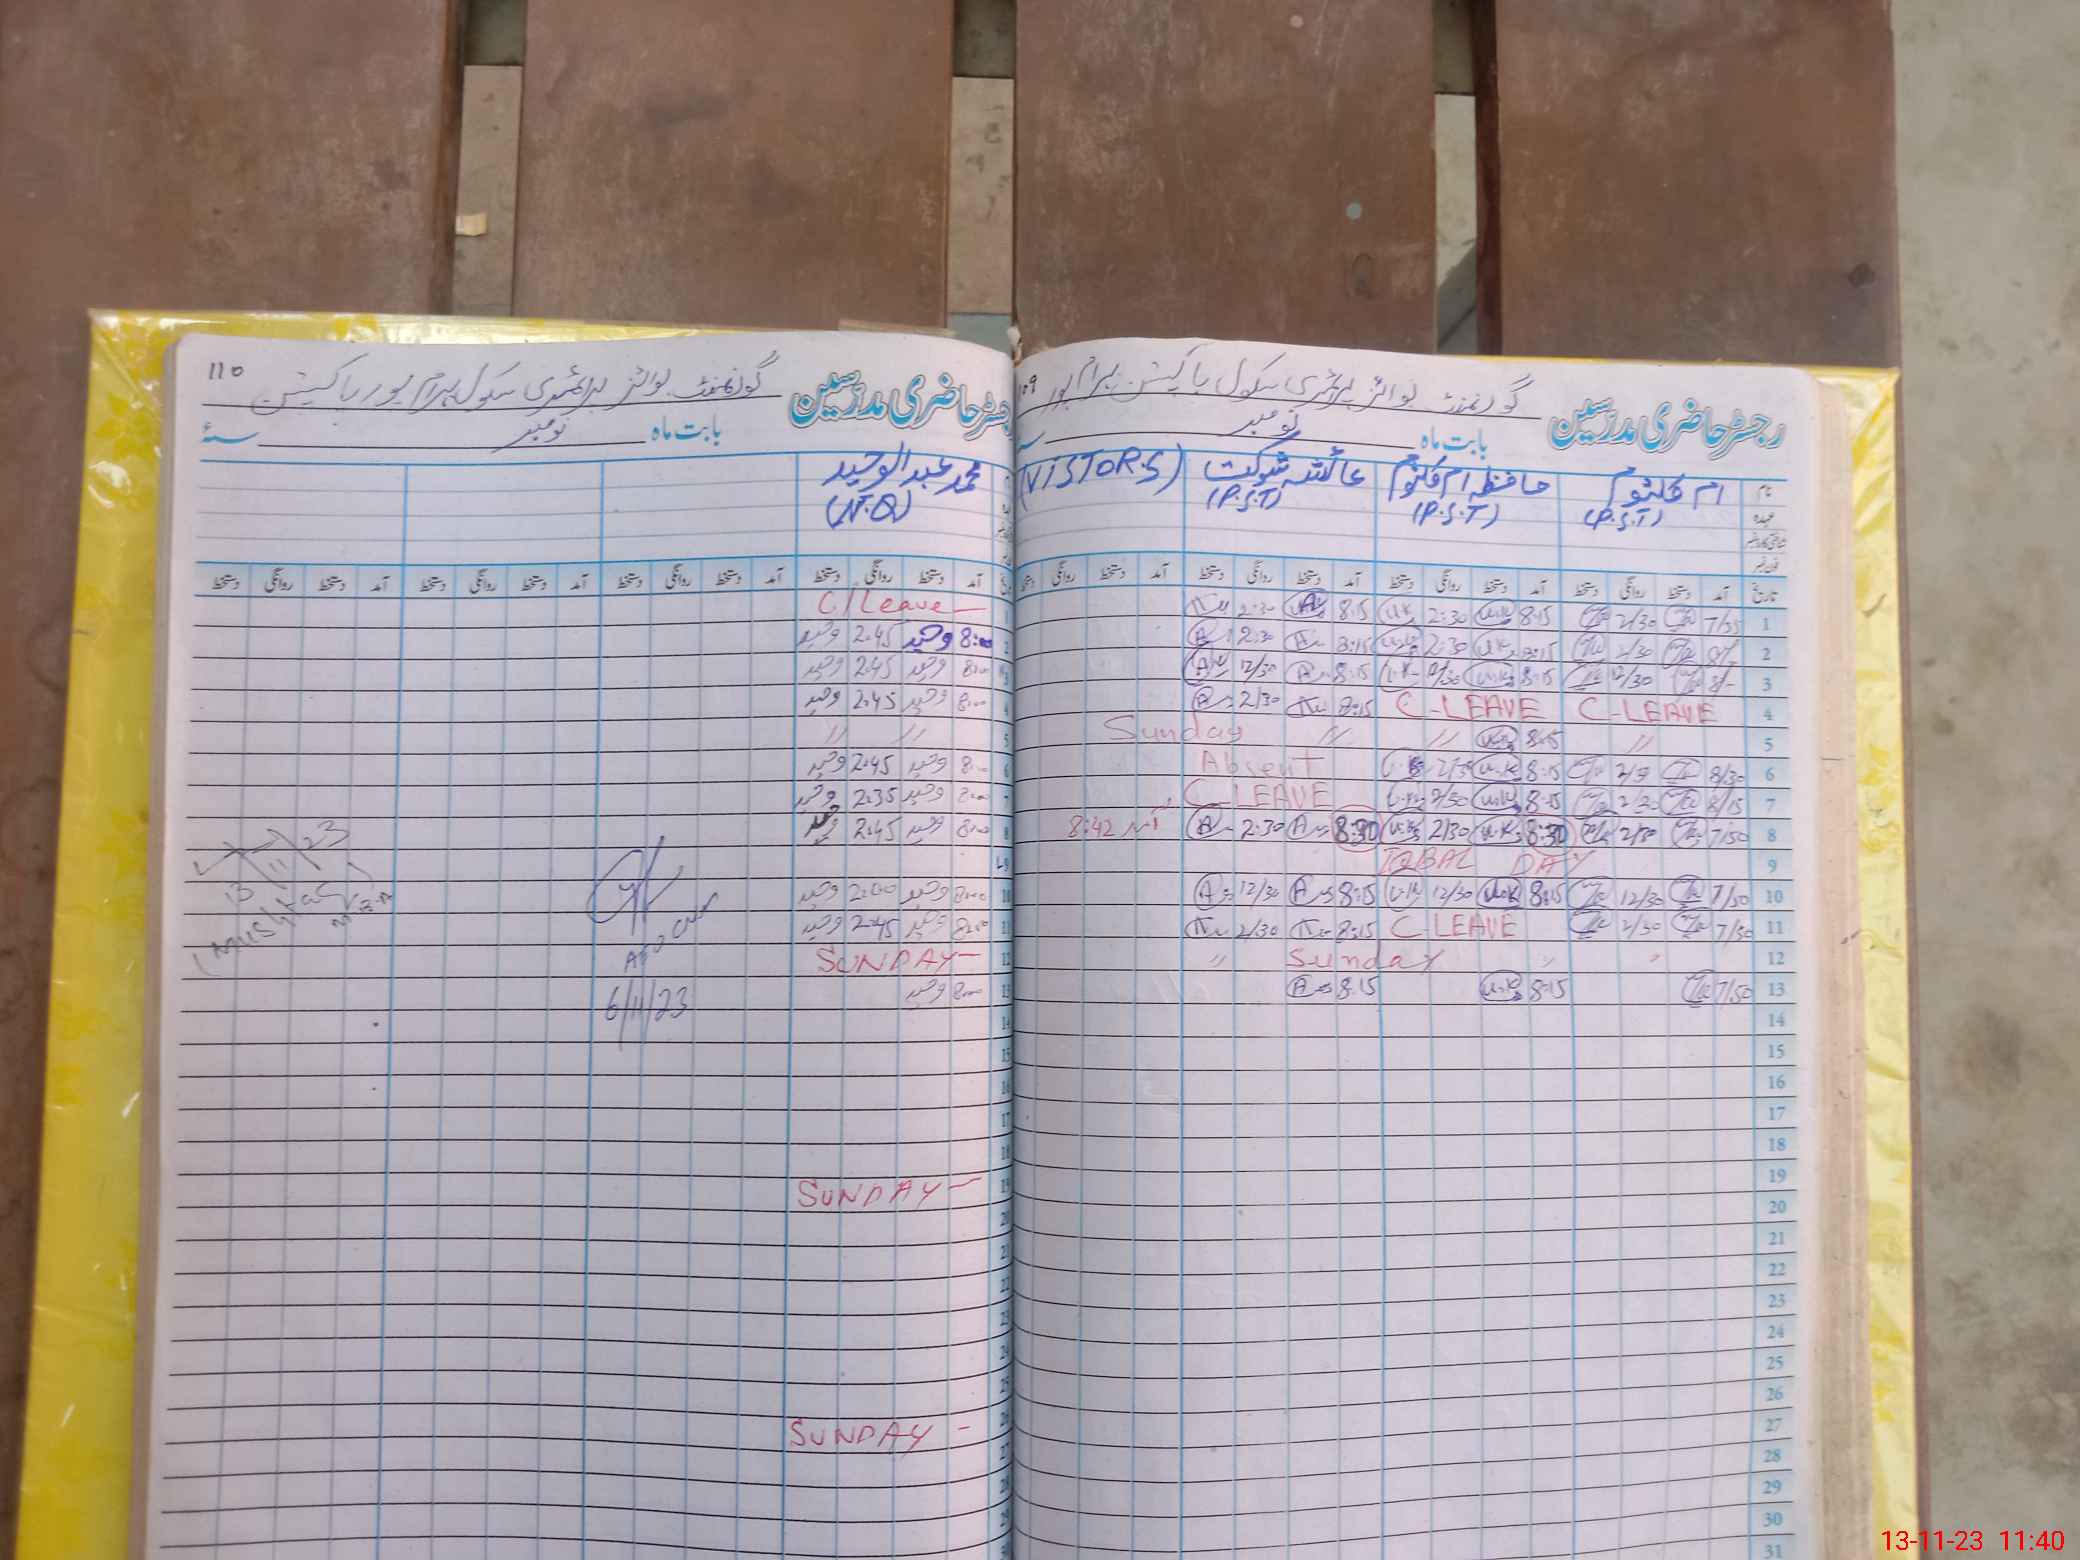 110
گورنمنٹ بوائز پرائمری سکول بہرام پور پاکپتن
رجسٹر حاضری مدرسین
بابت ماہ نومبر سنہ
محمد عبدالوحید
(N.Q)
آمد دستخط روانگی دستخط آمد دستخط روانگی دستخط آمد دستخط روانگی دستخط آمد دستخط روانگی دستخط
C/Leave
2 8:00 وحید 2:45 وحید
8:00 وحید 2:45 وحید
4 8:00 وحید 2:45 وحید
5 〃 〃
6 8:00 وحید 2:45 وحید
8:00 وحید 2:35 وحید
8 8:00 وحید 2:45 وحید
10 8:00 وحید 2:00 وحید
11 8:00 وحید 2:45 وحید
12 SUNDAY
13 8:00 وحید
14
15
16
17
18
19 SUNDAY
20
21
22
23
24
25
26 SUNDAY
27
28
29
13/11/23
Mushtaq
6/11/23
109
گورنمنٹ بوائز پرائمری سکول پاکپتن بہرام پور
رجسٹر حاضری مدرسین
بابت ماہ نومبر
نام ام کلثوم حافظہ ام کلثوم عائشہ شوکت (VISTORS)
عہدہ (P.S.T) (P.S.T) (P.S.T)
شناختی کارڈ نمبر
فون نمبر
تاریخ آمد دستخط روانگی دستخط آمد دستخط روانگی دستخط آمد دستخط روانگی دستخط آمد دستخط روانگی دستخط
1 7/55 2/30 8:15 U.K 2:30 U.K 8:15 2:30
2 8/- 2/30 8:15 U.K 2:30 U.K 8:15 A 2:30 A
3 8/- 12/30 8:15 U.K 12/30 U.K 8:15 A 12/30 A
4 C-LEAVE C-LEAVE 8:15 2/30 A
5 〃 8:15 U.K 〃 〃 Sunday
6 8/30 8:15 U.K 2/30 U.K Absent
7 8/15 8:15 U.K U.K C-LEAVE
8 7/50 2/30 8:30 U.K 2/30 U.K 8:30 A 2:30 A آمد 8:42
9 IQBAL DAY
10 7/50 12/30 8:15 U.K 12/30 U.K 8:15 A 12/30 A
11 7/50 2/30 C LEAVE 8:15 2/30
12 〃 〃 Sunday 〃
13 7/50 8:15 U.K 8:15 A
14
15
16
17
18
19
20
21
22
23
24
25
26
27
28
29
30
31
13-11-23 11:40